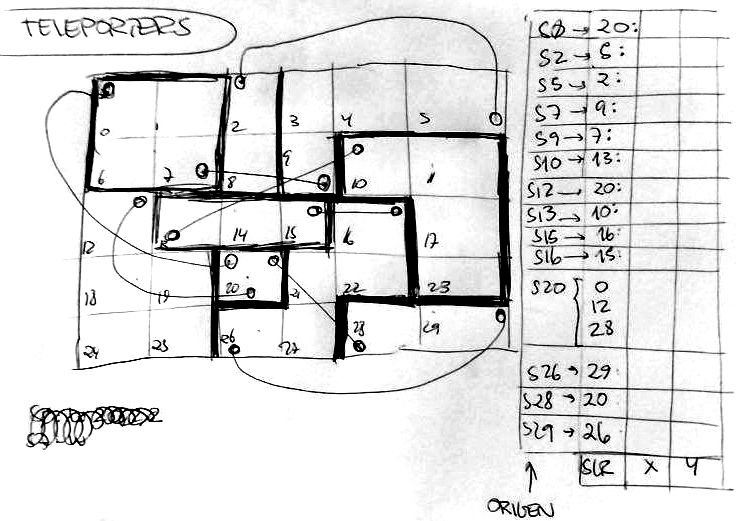 TELEPORTERS
0 1 2 3 4 5
6 7 8 9 10 11
12 13 14 15 16 17
18 19 20 21 22 23
24 25 26 27 28 29
S0 → 20:
S2 → 5:
S5 → 2:
S7 → 9:
S9 → 7:
S10 → 13:
S12 → 20:
S13 → 10:
S15 → 16:
S16 → 15:
S20 { 0
12
28
S26 → 29:
S28 → 20
S29 → 26
SCR X Y
ORIGEN